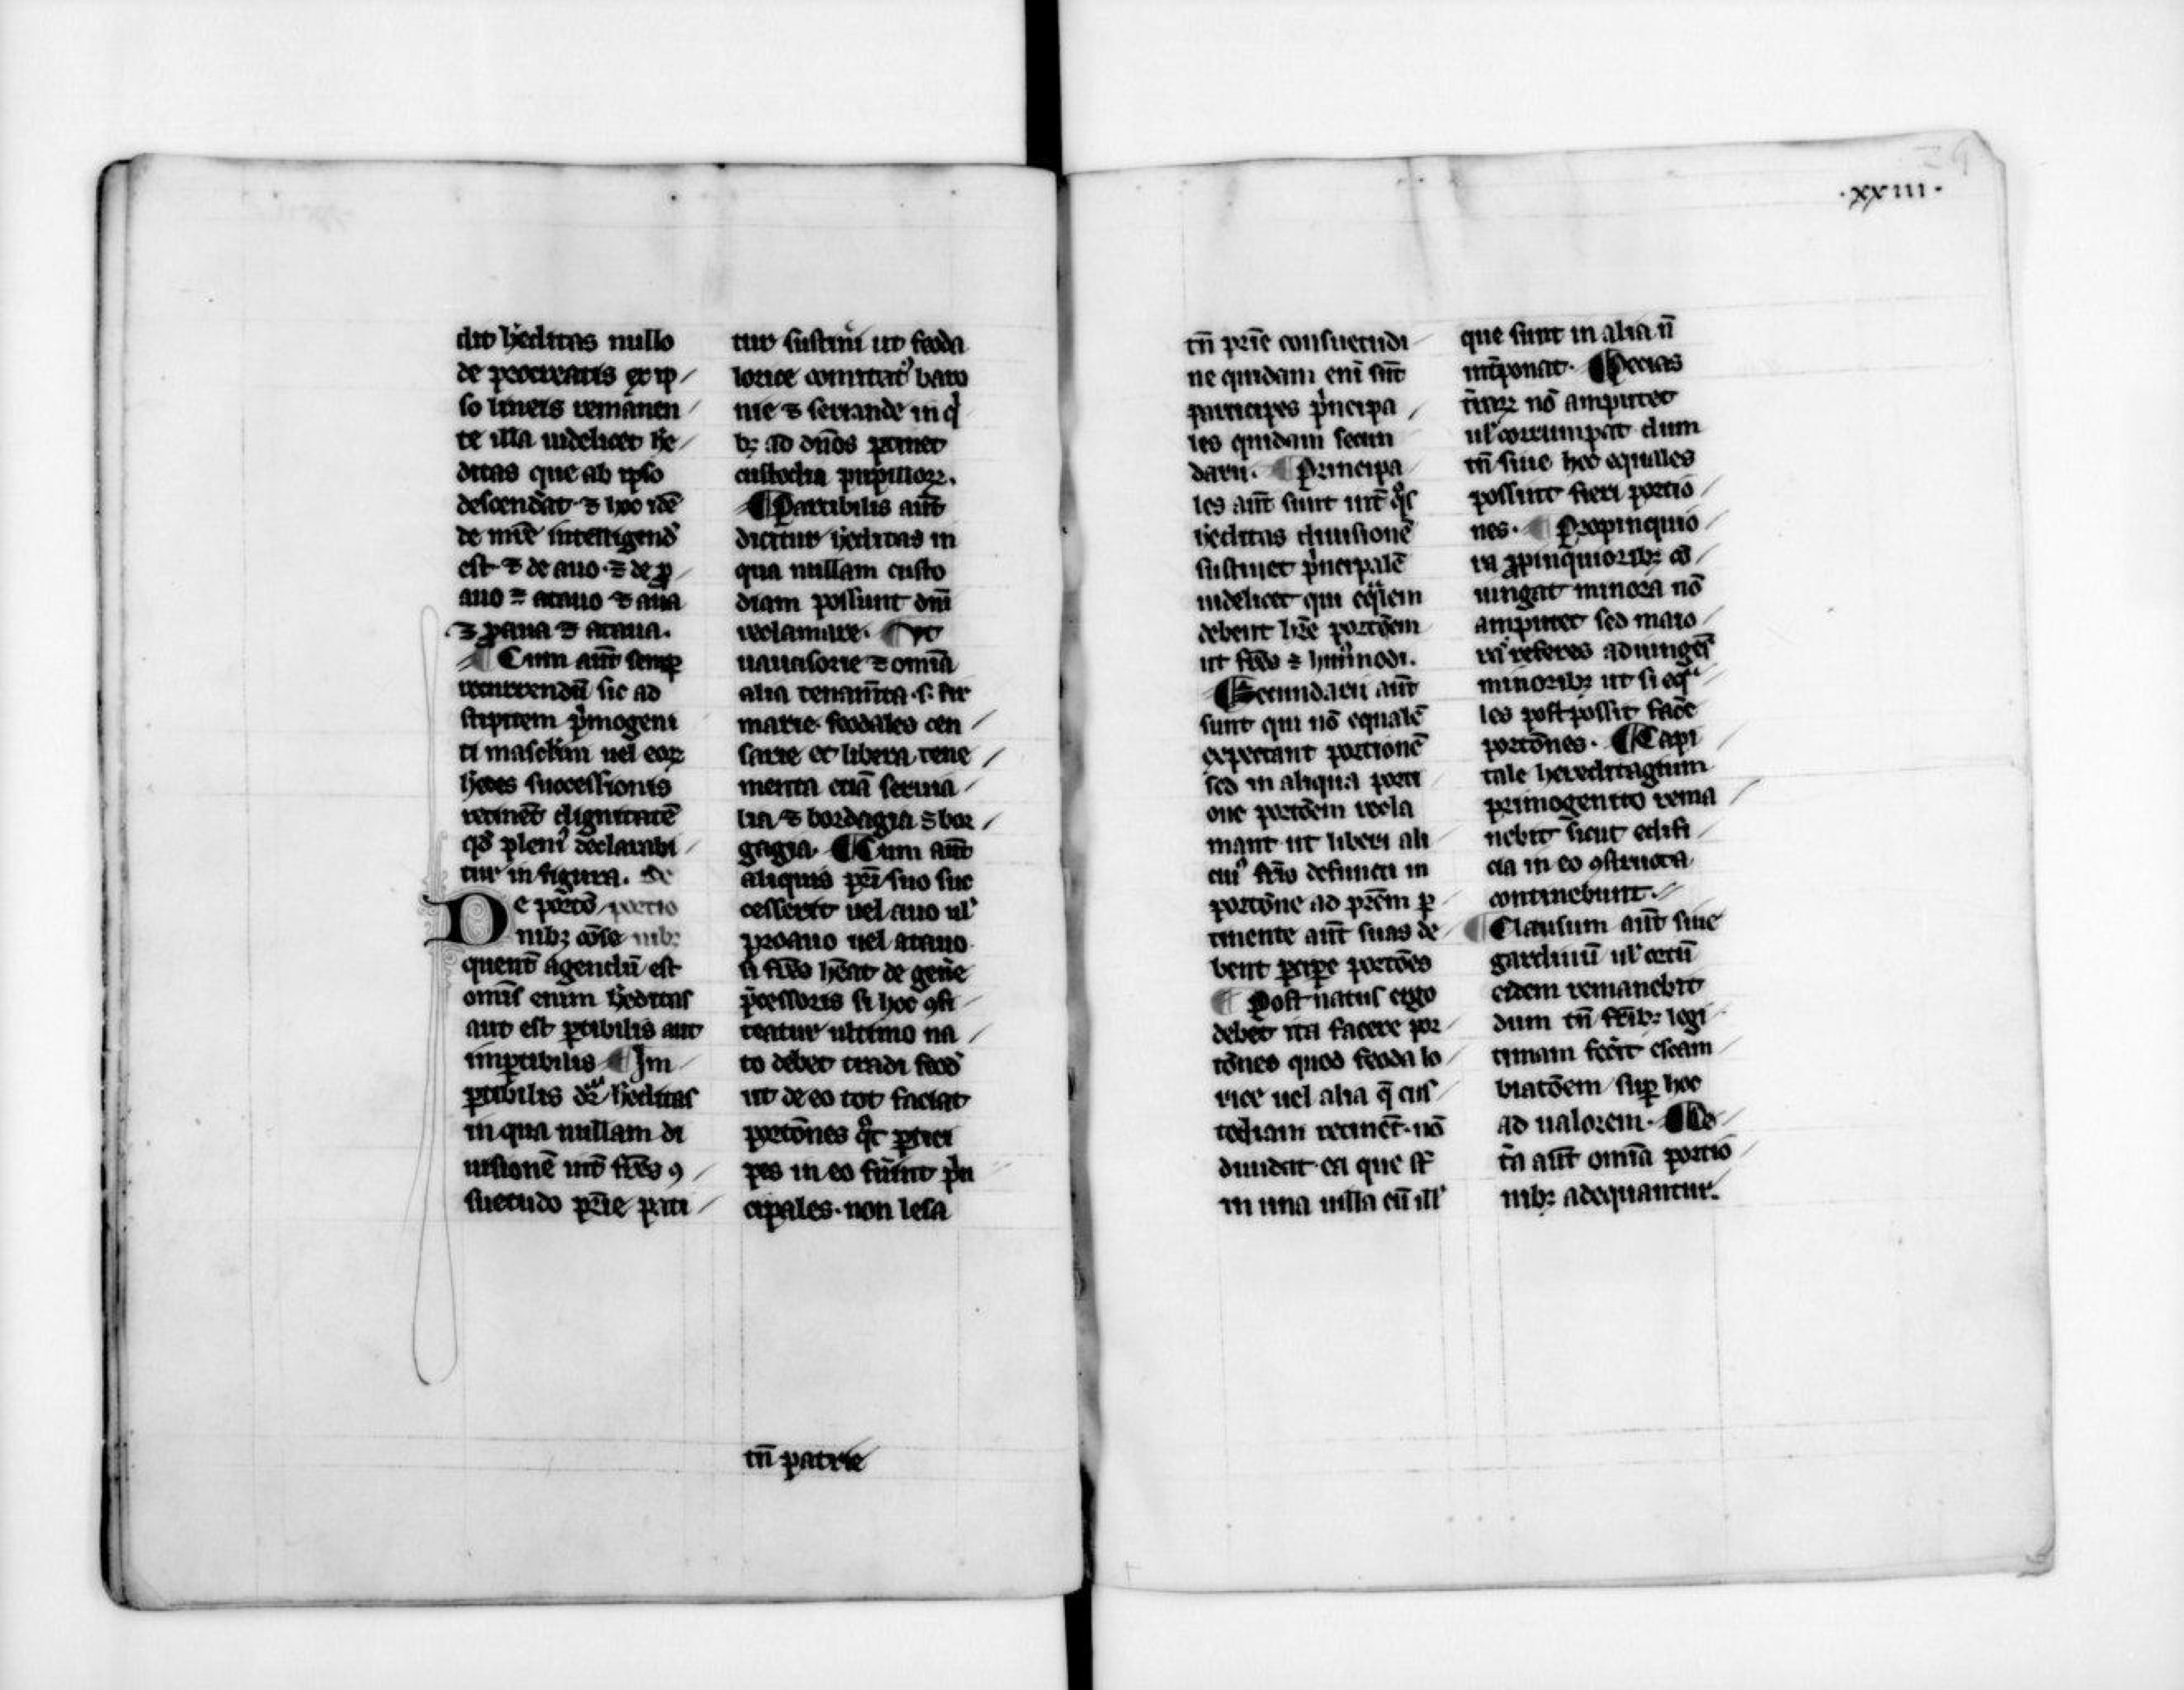 dit h'editas nullo
de procreatis ex ip
so lineis remanen
te illa uidelicet he
ditas que ab ipso
descendat ⁊ hoc idē
de mr̄e intelligend'
est ⁊ de auo ⁊ de ꝓ
auo ⁊ atauo ⁊ aua
⁊ ꝓaua ⁊ ataua.
¶ Cum aūt semꝑ
recurrendū sic ad
stipitem p'mogeni
ti masclīm uel eoꝝ
h'edes successionis
retinēt dignitatē
qd' pleni' declarabi
tur in figura. De
De portō portio
nibꝫ cōse nibꝫ
quent' agendū est
omīs enim h'editas
aut est ꝑtibilis aut
imꝑtibilis ¶ Im
ꝑtibilis dr̄ h'editas
in qua nullam di
uisionē int' fr̄es ꝯ
suetudo pr̄ie pati
tur sustin'i ut feoda
lorice comitat' baro
nie ⁊ seriande in q'
bꝫ ad dn̄os ꝑtinet
custodia pupilloꝝ.
¶ Partibilis aūt
dicitur h'editas in
qua nullam custo
diam possunt dn̄i
reclamare. ¶ Ut
uauasorie ⁊ omīa
alia tenam̄ta .s. fir
marie feodales cen
sarie et libera tene
menta etiā seruia
lia ⁊ bordagia ⁊ bor
gagia. ¶ Cum aūt
aliquis pr̄i suo suc
cesserit uel auo ul'
proauo uel atauo
si fr̄es hēat de gen'e
p'cessoris si hoc ꝯfi
teatur ultimo na
to debet tradi feod'
ut de eo tot faciat
portōnes qt' ꝑtici
pes in eo fūint p'n
cipales. non lesa
tn̄ patrie
.xxiii.
tn̄ pr̄ie consuetudi
ne quidam eni sūt
participes p'ncipa
les quidam secun
darii. ¶ Principa
les aūt sunt int' q's
h'editas diuisionē
sustinet p'ncipalē
uidelicet qui eq'lem
debent h'r̄e portōem
ut fr̄es ⁊ hui'modi.
¶ Secundarii aūt
sunt qui nō equalē
expectant portionē
sed in aliqua porti
one portōem recla
mant ut liberi ali
cui' fr̄is defuncti in
portōne ad pr̄em ꝑ
tinente aūt suas de
bent ꝑcipe portōes
¶ Post natus ergo
debet ita facere por
tōnes quod feoda lo
rice uel alia q̄ cus
todiam retinēt nō
diuidat ea que st'
in una uilla cū ill'
que sunt in alia n̄
int'ponat. ¶ Pecias
t'raꝝ nō amputet
ul' corrumpat dum
tn̄ siue hoc equales
possint fieri portio
nes. ¶ Propinquio
ra ꝓpinquioribꝫ ad
iungat minora nō
amputet sed maio
ra referes adiunget
minoribꝫ ut si eq'
les post possit fac'e
portōnes. ¶ Capi
tale hereditagium
primogenito rema
nebit sicut edifi
cia in eo ꝯstructa
continebunt.
¶ Clausum aūt siue
gardinū ul' ortū
eidem remanebit
dum tn̄ fr̄ibꝫ legi
timam fec'it escam
biatōem suꝑ hoc
ad ualorem. ¶ Ce
t'a aūt omīa portio
nibꝫ adequantur.